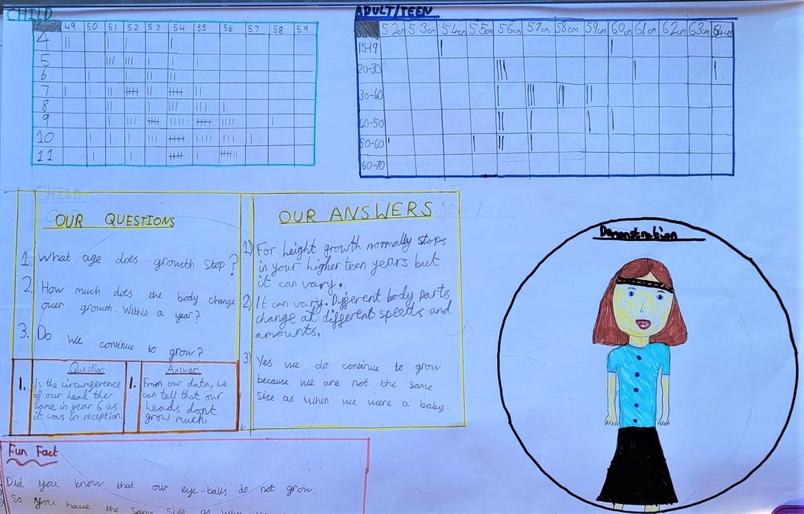 CHILD
49 50 51 52 53 54 55 56 57 58 59
4
5
6
7
8
9
10
11
ADULT/TEEN
52cm 53cm 54cm 55cm 56cm 57cm 58cm 59cm 60cm 61cm 62cm 63cm 64cm
15-19
20-30
30-40
40-50
50-60
60-70
CHILD
OUR QUESTIONS
1. What age does growth stop?
2. How much does the body change
over growth. Within a year?
3. Do we continue to grow?
Question
1. Is the circumgerence
of our head the
same in year 6 as
it was in reception.
Answer
1. From our data, we
can tell that our
heads dont
grow much.
OUR ANSWERS
1) For height growth normally stops
in your higher teen years but
it can vary.
2) It can vary. Different body parts
change at different speeds and
amounts.
3) Yes we do continue to grow
because we are not the same
size as when we were a baby.
Demonstration
Fun Fact
Did you know that our eye-balls do not grow.
So you have the same size as